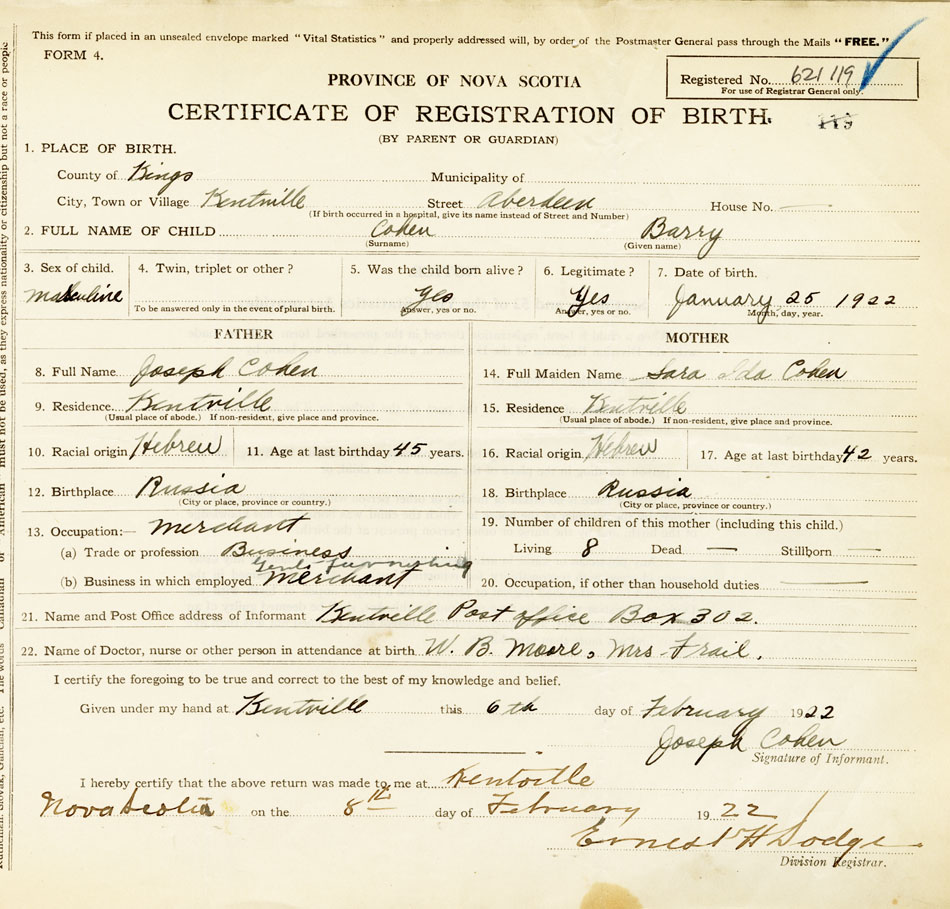 This form if placed in an unsealed envelope marked "Vital Statistics" and properly addressed will, by order of the Postmaster General pass through the Mails "FREE."
FORM 4.
PROVINCE OF NOVA SCOTIA
Registered No. 621 119
For use of Registrar General only.
CERTIFICATE OF REGISTRATION OF BIRTH.
119
(BY PARENT OR GUARDIAN)
1. PLACE OF BIRTH.
County of Kings Municipality of
City, Town or Village Kentville Street Aberdeen House No. —
(If birth occurred in a hospital, give its name instead of Street and Number)
2. FULL NAME OF CHILD Cohen Barry
(Surname) (Given name)
3. Sex of child. 4. Twin, triplet or other? 5. Was the child born alive? 6. Legitimate? 7. Date of birth.
Masculine Yes Yes January 25 1922
To be answered only in the event of plural birth. Answer, yes or no. Answer, yes or no. Month, day, year.
FATHER MOTHER
8. Full Name Joseph Cohen 14. Full Maiden Name Sara Ida Cohen
9. Residence Kentville 15. Residence Kentville
(Usual place of abode.) If non-resident, give place and province. (Usual place of abode.) If non-resident, give place and province.
10. Racial origin Hebrew 11. Age at last birthday 45 years. 16. Racial origin Hebrew 17. Age at last birthday 42 years.
12. Birthplace Russia 18. Birthplace Russia
(City or place, province or country.) (City or place, province or country.)
13. Occupation:— Merchant 19. Number of children of this mother (including this child.)
(a) Trade or profession Business Living 8 Dead — Stillborn —
Gents furnishing
(b) Business in which employed Merchant 20. Occupation, if other than household duties —
21. Name and Post Office address of Informant Kentville Post office Box 302.
22. Name of Doctor, nurse or other person in attendance at birth W. B. Moore, Mrs Trail.
I certify the foregoing to be true and correct to the best of my knowledge and belief.
Given under my hand at Kentville this 6th day of February 1922
Joseph Cohen
Signature of Informant.
I hereby certify that the above return was made to me at Kentville
Nova Scotia on the 8th day of February 1922
Ernest H Dodge
Division Registrar.